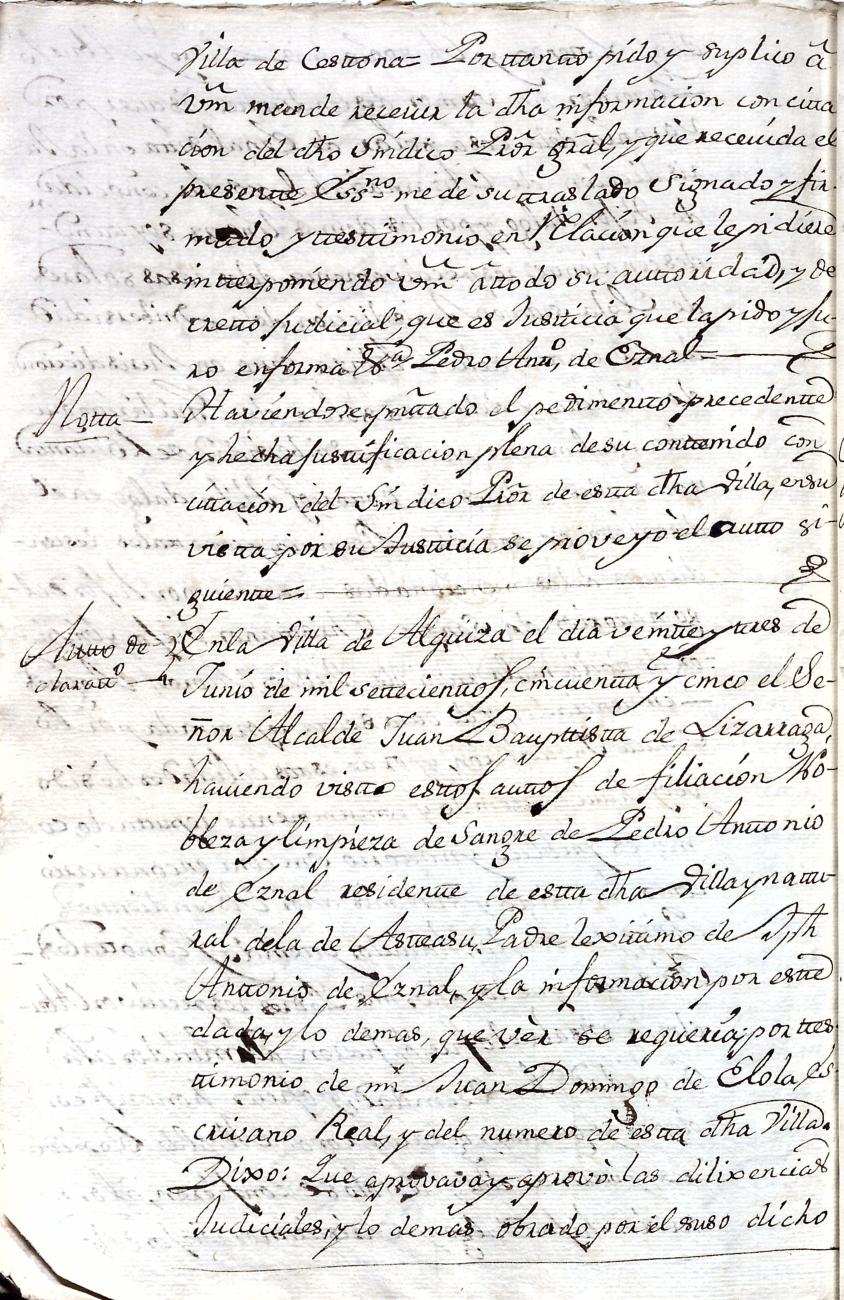 Villa de Cestona= Por ttantto pido y suplico â
Vm̃ mande receiuir la dha informacion con citta
cion del dho Síndico Prõr gñal, y que receiuída el
presentte Ess.no me dè su ttraslado Signado y fir-
mado y ttesttimonio en Relación que le pidiere
intterponíendo Vm̃ â ttodo su auttoridad, y de
cretto Judicial, que es Justticia que la pido y Ju-
ro en forma Pedro Antt.o de Eznal=
Notta— Haviéndose pñtado el pedimentto precedentte
y hecha justtificacion plena de su conttenido con
cittación del Síndico Prõr de estta dha Villa, en su
vistta por su Justticía se proveyò el autto si-
guientte=
Autto de
claratt.o
En la Villa de Alquiza el dia veintte y ttres de
Junío de mil settecienttos, cincuentta y cinco el Se-
ñor Alcalde Juan Bapttistta de Lizarraga,
haviendo vistto esttos auttos de filiación No-
bleza y limpieza de Sangre de Pedro Anttonio
de Eznal residentte de estta dha Villa y nattu-
ral de la de Astteasu, Padre lexittimo de Jph
Anttonio de Eznal, y la información por estte
dada, y lo demas, que vèr se requería, por ttes-
ttimonio de mí Juan Domingo de Elola, es-
crivano Real, y del numero de estta dha Villa.
Dixo: Que aprovava y aprovò las dilixencias
Judiciales, y lo demas obrado por el suso dicho